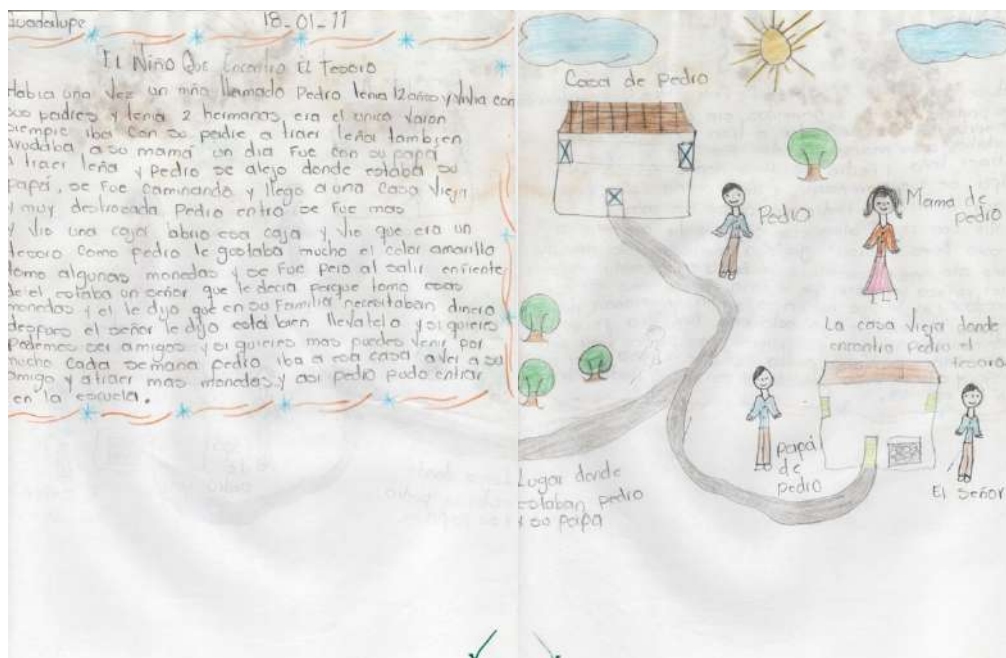 Guadalupe 18-01-11
El Niño Que Encontro El Tesoro
Habia una vez un niño llamado Pedro tenia 12 años y vivia con
sus padres y tenia 2 hermanas era el unico varon
siempre iba con su padre a traer leña tambien
ayudaba a su mamá un dia fue con su papá
a traer leña y Pedro se alejo donde estaba su
papá, se fue caminando y llego a una casa vieja
y muy destrozada Pedro entro se fue mas
y vio una caja labrio esa caja y vio que era un
tesoro como pedro le gustaba mucho el color amarillo
tomo algunas monedas y se fue pero al salir enfrente
de el estaba un señor que le decia porque tomo esas
monedas y el le dijo que en su familia necesitaban dinero
despues el señor le dijo esta bien llevatelo y si quieres
Podemos ser amigos y si quieres mas puedes venir por
mucho cada semana pedro iba a esa casa a ver a su
amigo y atraer mas monedas y asi pedro pudo entrar
en la escuela.
Casa de Pedro
Pedro
Mama de
pedro
La casa Vieja donde
encontro pedro el
tesoro
papá
de
pedro
El señor
Lugar donde
estaban pedro
y su papa